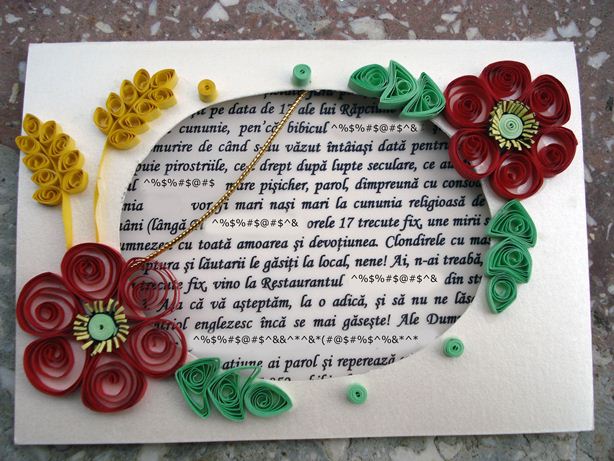 pe data de 17 ale lui Răpciune
cununie, pen'că bibicul ^%$%#$@#$^&
murire de când s-au văzut întâiași dată pentru
puie pirostriile, ce-i drept după lupte seculare, ce au
^%$%#$@#$ mare pișicher, parol, dimpreună cu
vor fi mari nași mari la cununia religioasă de
(lângă ^%$%#$@#$^& orele 17 trecute fix, une mirii s
cu toată amoarea și devoțiunea. Clondirele cu
și lăutarii le găsiți la local, nene! Ai, n-ai treabă,
trecute fix, vino la Restaurantul ^%$%#$@#$^& din
că vă așteptăm, la o adică, și să nu ne
englezesc încă se mai găsește! Ale
^%$%#$@#$^&&^*^&*(#@$#%$^%&*^*
ai parol și reperează